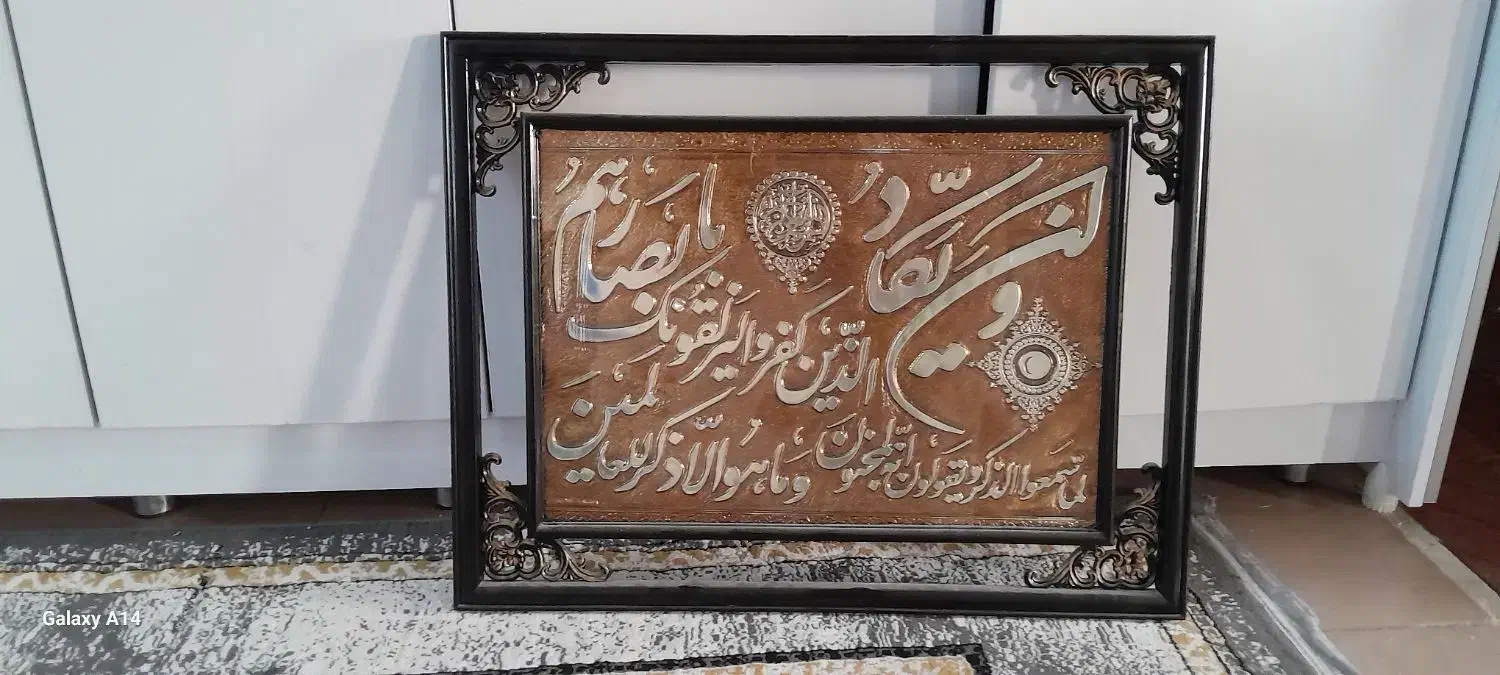 وَاِن یَکادُ
الّذین کفروا لیزلقونک
بابصارهم
لمّا سمعوا الذکر و یقولون انّه لمجنون
و ما هو الّا ذکر للعالمین
Galaxy A14